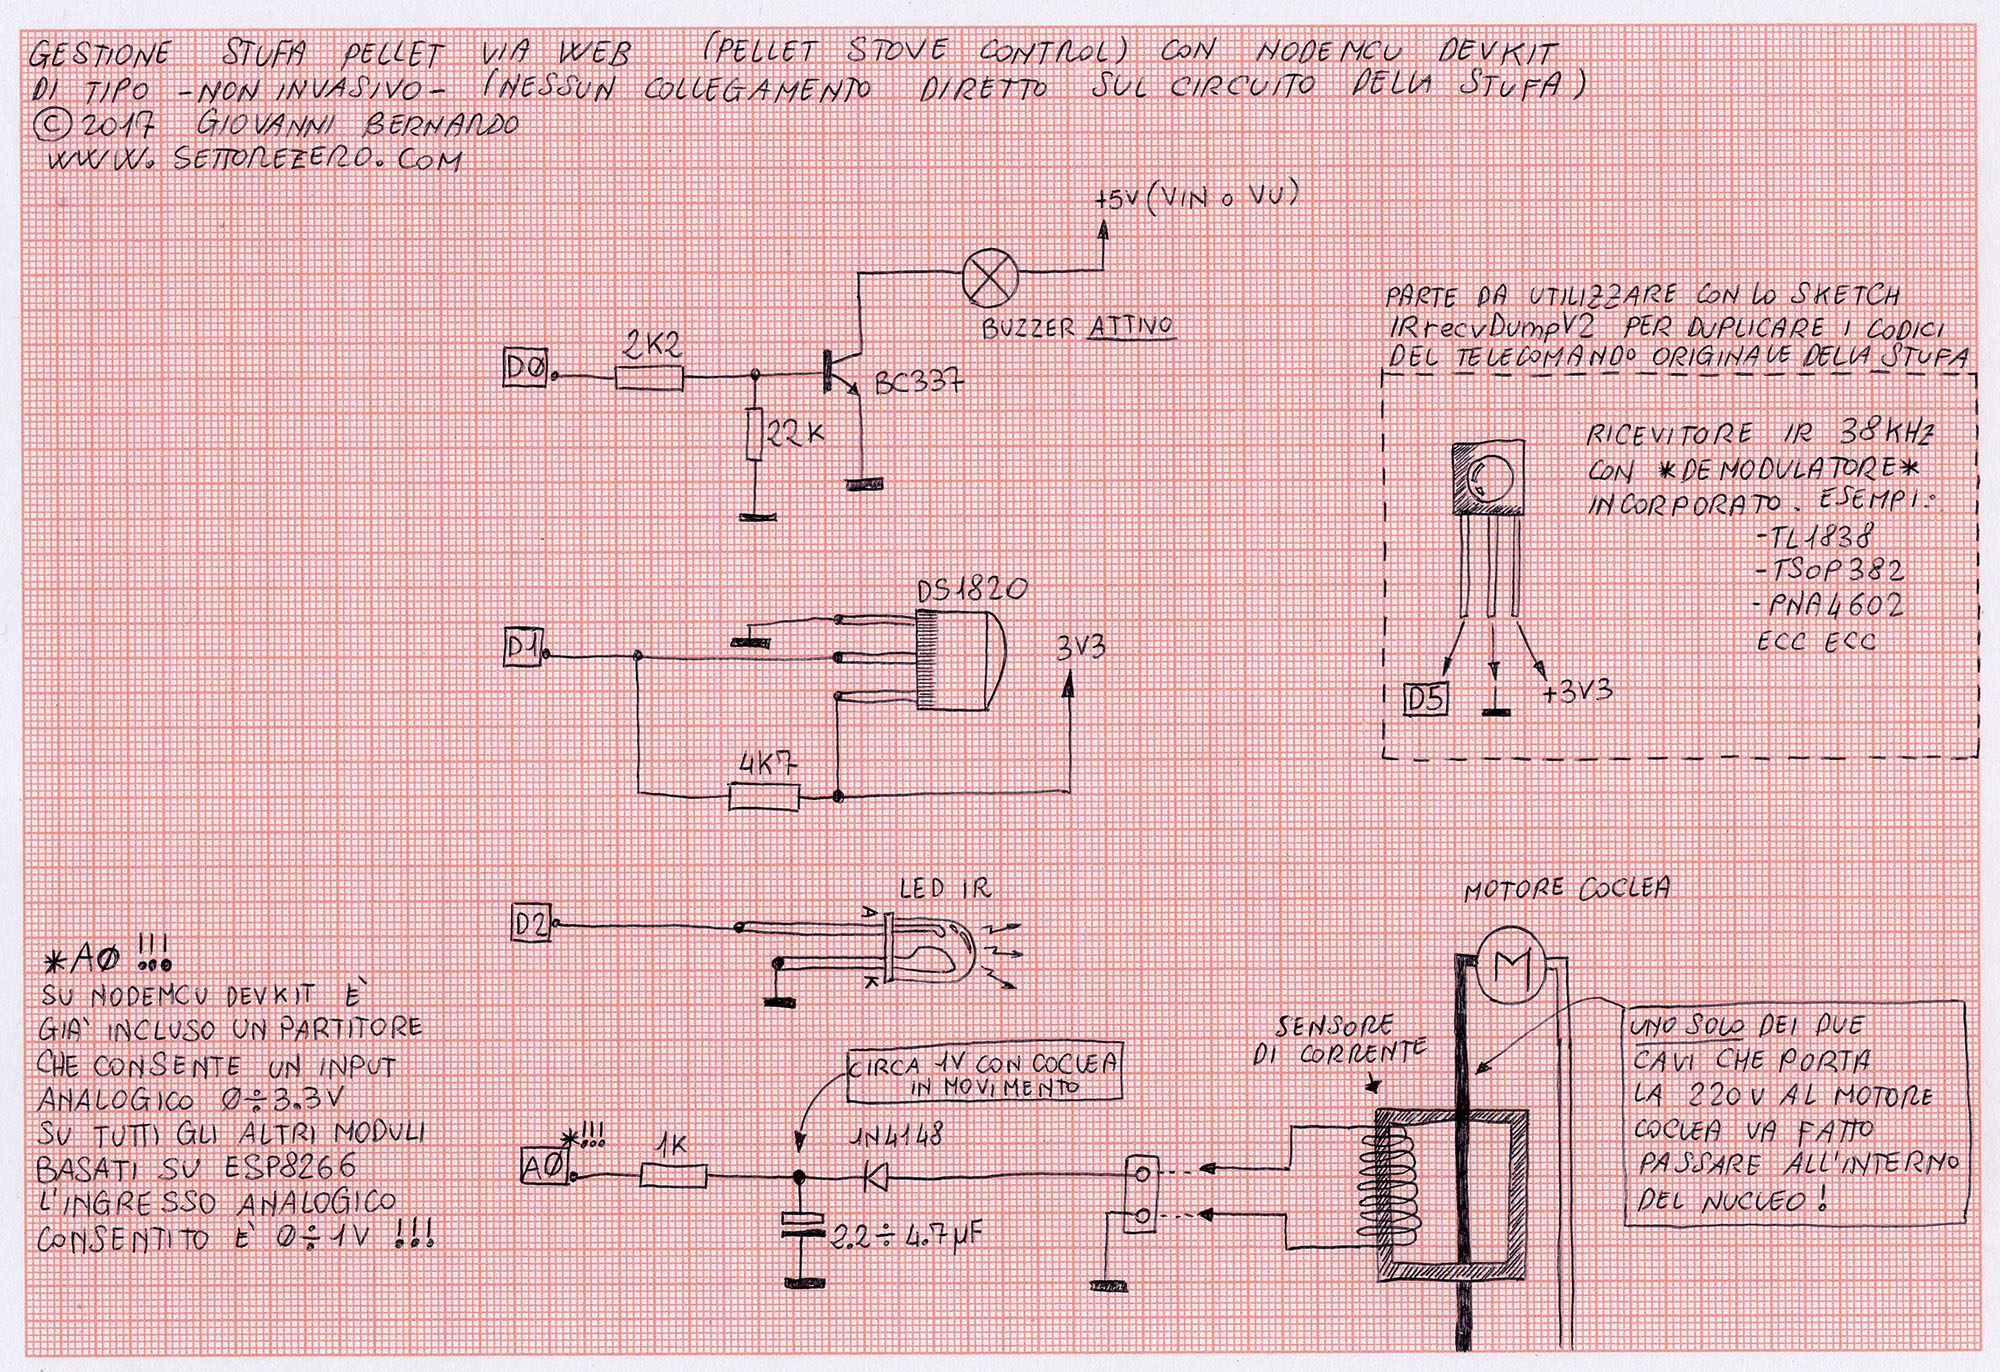 GESTIONE STUFA PELLET VIA WEB (PELLET STOVE CONTROL) CON NODEMCU DEVKIT
DI TIPO -NON INVASIVO- (NESSUN COLLEGAMENTO DIRETTO SUL CIRCUITO DELLA STUFA)
© 2017 GIOVANNI BERNARDO
WWW.SETTOREZERO.COM
+5V (VIN o VU)
BUZZER ATTIVO
D0
2K2
BC337
22K
PARTE DA UTILIZZARE CON LO SKETCH
IRrecvDumpV2 PER DUPLICARE I CODICI
DEL TELECOMANDO ORIGINALE DELLA STUFA
RICEVITORE IR 38KHZ
CON *DEMODULATORE*
INCORPORATO. ESEMPI:
-TL1838
-TSOP382
-PNA4602
ECC ECC
D5
+3V3
DS1820
D1
3V3
4K7
LED IR
D2
A
K
MOTORE COCLEA
M
*AØ !!!
SU NODEMCU DEVKIT È
GIA' INCLUSO UN PARTITORE
CHE CONSENTE UN INPUT
ANALOGICO Ø÷3.3V
SU TUTTI GLI ALTRI MODULI
BASATI SU ESP8266
L'INGRESSO ANALOGICO
CONSENTITO È Ø÷1V !!!
SENSORE
DI CORRENTE
UNO SOLO DEI DUE
CAVI CHE PORTA
LA 220V AL MOTORE
COCLEA VA FATTO
PASSARE ALL'INTERNO
DEL NUCLEO!
CIRCA 1V CON COCLEA
IN MOVIMENTO
*!!!
AØ
1K
1N4148
2.2÷4.7µF